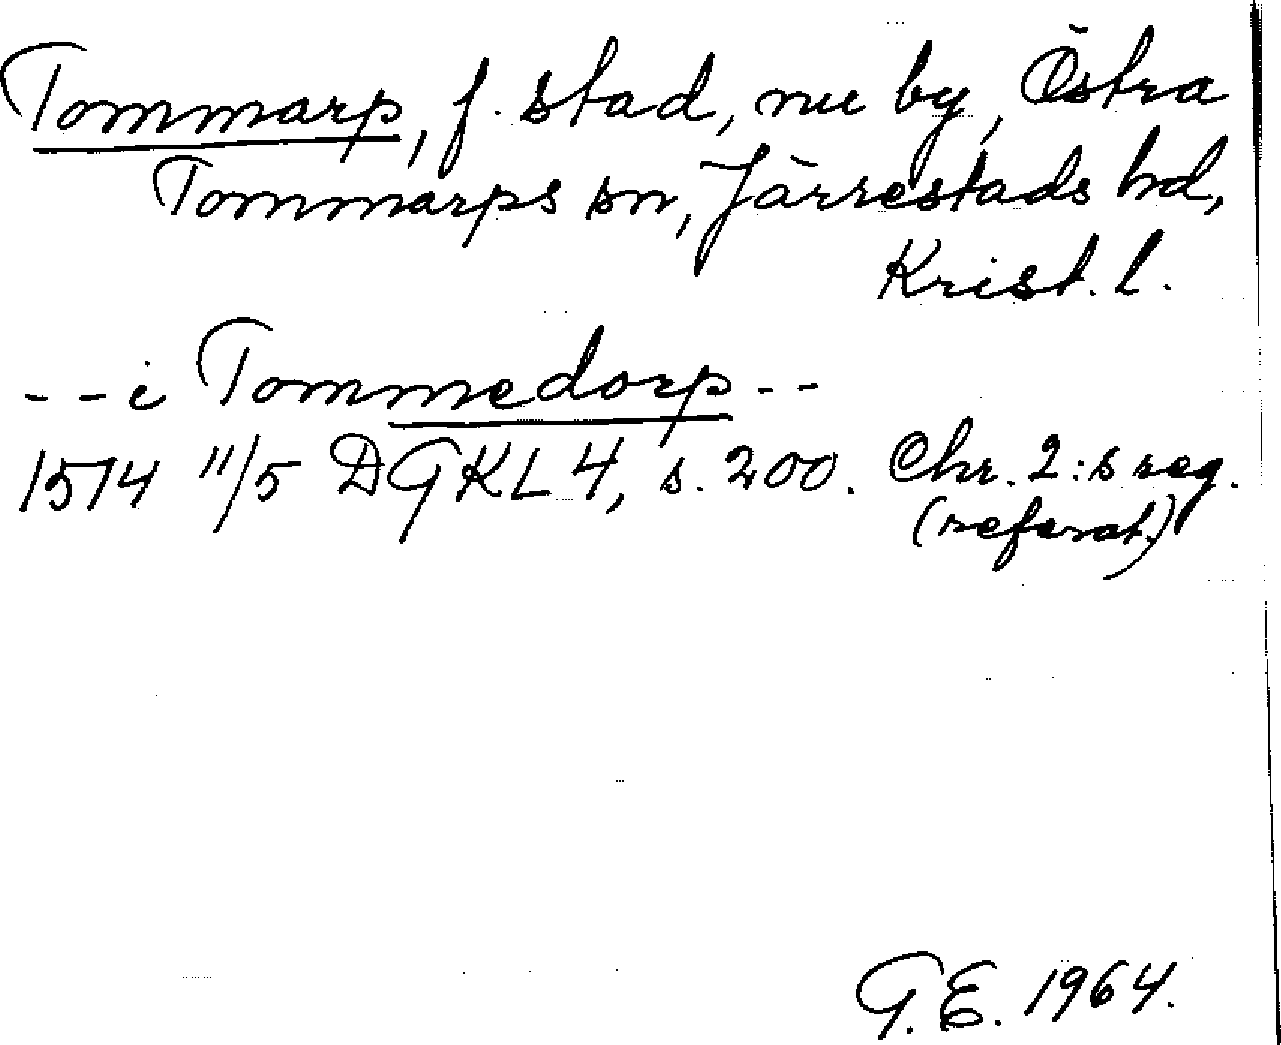 Tommarp, f. stad, nu by, Östra
Tommarps sn, Järrestads hd,
Krist. l.
- - i Tommedorp - -
1574 11/5 DGKL 4, s. 200. Chr. 2:s reg.
(referat.)
G.E. 1964.